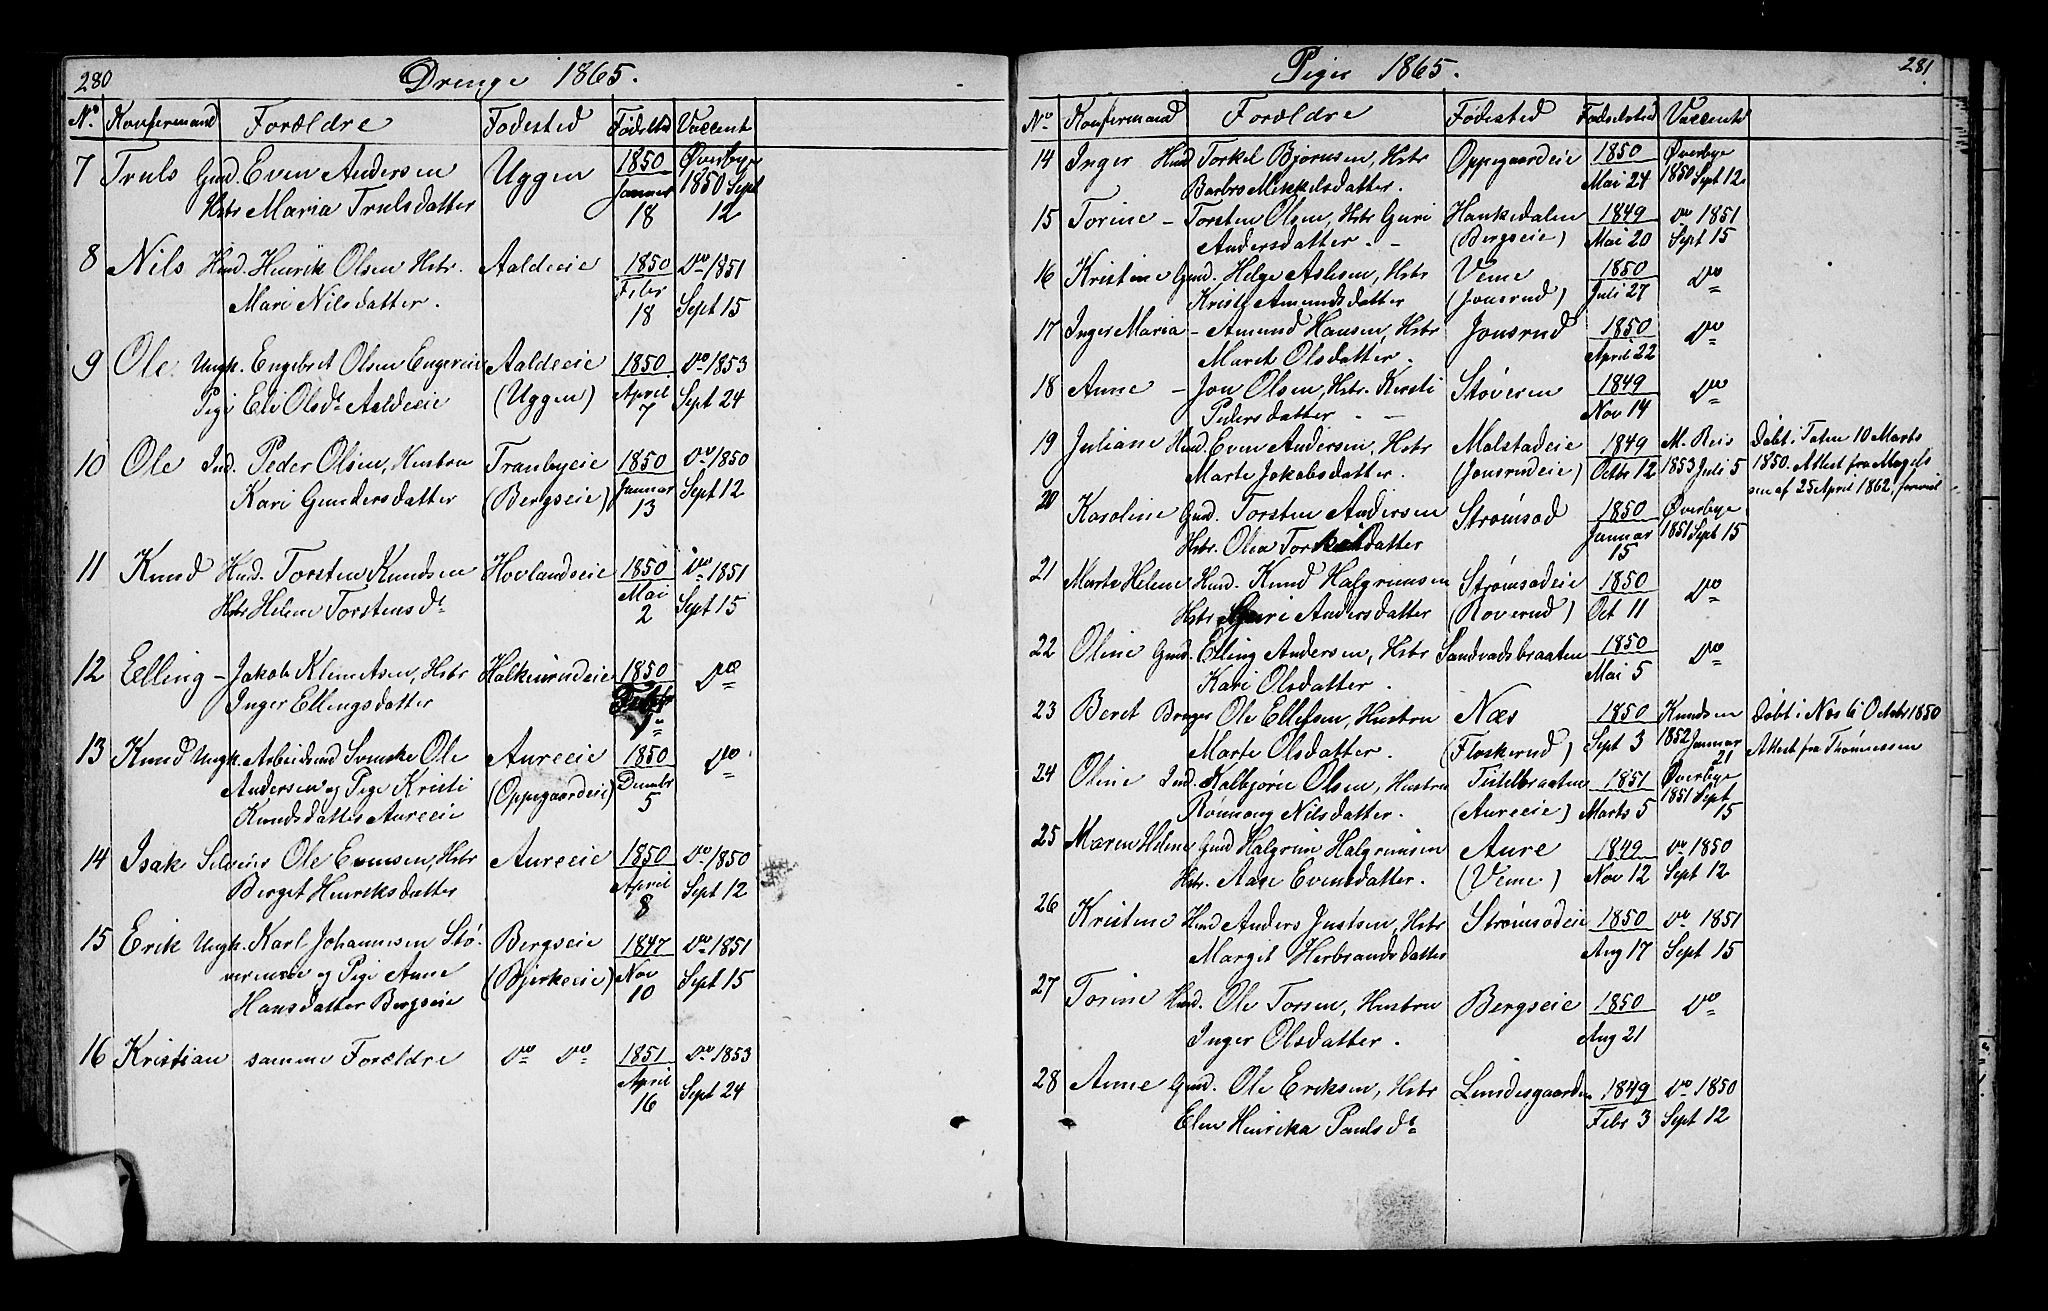 280 Drenge 1865.
No. Konfirmand Forældre Fødested Fødselstd Vaccent
7 Truls Gmd. Even Andersen Uggen 1850 Øverbye
Hstr Maria Trulsdatter Januar 18 1850 Sept 12
8 Nils Hmd. Henrik Olsen Hstr. Aaldeeie 1850 Do 1851
Mari Nilsdatter. Febr 18 Sept 15
9 Ole Ungk. Engebret Olsen Engereie Aaldeeie 1850 Do 1853
Pige Eli Olsdr Aaldeeie (Uggen) April 7 Sept 24
10 Ole Ind. Peder Olsen, Hustru Tranbyeie 1850 Do 1850
Kari Gundersdatter (Bergseie) Januar 13 Sept 12
11 Knud Hmd. Torsten Knudsen Hovlandseie 1850 Do 1851
Hstr Helene Torstensdr Mai 2 Sept 15
12 Elling - Jakob Klemetsen, Hstr Halkinrudeie 1850 Do
Inger Ellingsdatter Febr
13 Knud Ungk. Arbeidsmd Svenske Ole Aureeie 1850 Do
Andersen og Pige Kristi (Oppegaardeie) Decembr 5
Knudsdatter Aureeie
14 Isak Selveier Ole Evensen, Hstr Aureeie 1850 Do 1850
Berget Henriksdatter April 8 Sept 12
15 Erik Ungk. Karl Johannesen Stø- Bergseie 1847 Do 1851
vernseie og Pige Anne (Bjerkeeie) Nov 10 Sept 15
Hansdatter Bergseie
16 Kristian samme Forældre Do Do 1851 Do 1853
April 16 Sept 24
Piger 1865. 281
No. Konfirmand Forældre Fødested Fødselstid Vaccente
14 Inger Hmd. Torkel Bjørnsen, Hstr Oppegaardeie 1850 Øverbye
Barbro Mikkelsdatter. Mai 24 1850 Sept 12
15 Torine - Torsten Olsen, Hstr Guri Hankedalen 1849 Do 1851
Andersdatter. - (Bergseie) Mai 20 Sept 15
16 Kristine Gmd. Helge Aslesen, Hstr Veme 1850 Do
Kristi Amundsdatter (Jonsrud) Juli 27
17 Inger Maria - Amund Hansen, Hstr Jonsrud 1850 Do
Maret Olsdatter. April 22
18 Anne - Jon Olsen, Hstr. Kersti Støveren 1849 Do
Pedersdatter. - Nov 14
19 Juliane Hmd. Even Andersen, Hstr Molstadeie 1849 M. Reis Døbt i Toten 10 Marts
Marte Jakobsdatter. (Jonsrudeie) Octbr 12 1853 Juli 5 1850. Attest fra Magels
sen af 25 April 1862, forevist
20 Karoline Gmd. Torsten Andersen Strømsod 1850 Øverbye
Hstr. Olea Torkelsdatter Januar 15 1851 Sept 15
21 Marte Helene Hmd. Knud Halgrimsen Strømsodeie 1850 Do
Hstr Guri Andersdatter (Roverud) Oct 11
22 Oline Gmd. Elling Andersen, Hstr Sandvadsbraaten 1850 Do
Kari Olsdatter. Mai 5
23 Beret Bruger Ole Ellefsen, Hustru Næs 1850 Knudsen Døbt i Næs 6 Octobr 1850
Marte Olsdatter. (Flaskerud) Sept 3 1852 Januar 21 Attest fra Thomessen
24 Oline Ind. Kolbjørn Olsen, Hustru Tistelbraaten 1851 Øverbye
Rønnaug Nilsdatter. (Aureeie) Marts 5 1851 Sept 15
25 Maren Helene Gmd Halgrim Halgrimsen Aure 1849 Do 1850
Hstr. Aase Evensdatter. (Veme) Nov 12 Sept 12
26 Kristene Hmd Anders Justsen, Hstr Strømsodeie 1850 Do 1851
Margit Herbrandsdatter Aug 17 Sept 15
27 Torine Hmd. Ole Torsen, Hustru Bergseie 1850 Do
Inger Olsdatter. Aug 21
28 Anne Gmd. Ole Eriksen, Hstr Lundesgaarden 1849 Do 1850
Elen Henrika Paulsdr Febr 3 Sept 12